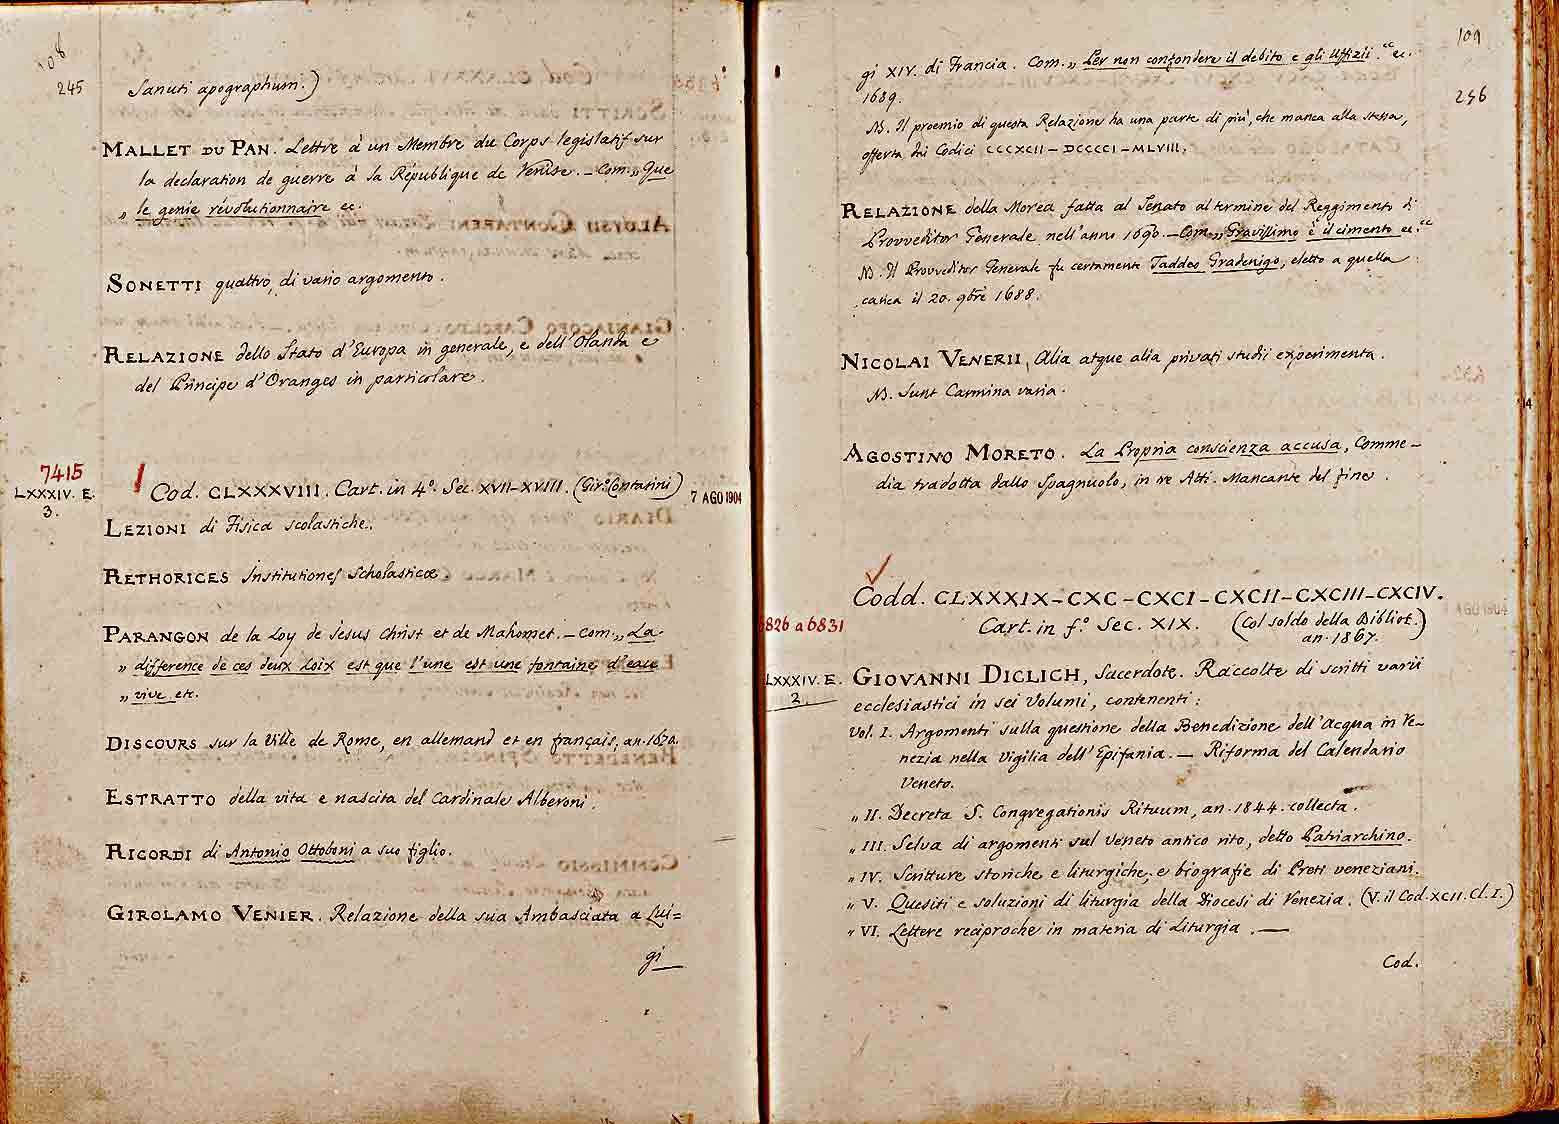 108
245
Sanuti apographum.)
MALLET DU PAN. Lettre à un Membre du Corps legislatif sur
la declaration de guerre à la République de Venise. _ Com. „ Que
„ le genie révolutionnaire ec.
SONETTI quattro, di vario argomento.
RELAZIONE dello Stato d'Europa in generale, e dell'Olanda e
del Principe d'Oranges in particolare.
7415
LXXXIV. E.
3.
Cod. CLXXXVIII. Cart. in 4º. Sec. XVII-XVIII. (Gir.º Contarini)
7 AGO 1904
LEZIONI di Fisica scolastiche.
RETHORICES Institutiones Scholasticæ
PARANGON de la Loy de Jesus Christ et de Mahomet. _ Com. „ La
„ difference de ces deux Loix est que l'une est une fontaine d'eau
„ vive etc.
DISCOURS sur la Ville de Rome, en allemand et en français, an. 1670.
ESTRATTO della vita e nascita del Cardinale Alberoni.
RICORDI di Antonio Ottoboni a suo figlio.
GIROLAMO VENIER. Relazione della sua Ambasciata a Lui=
gi
109
246
gi XIV. di Francia. Com. „ Per non confondere il debito e gli Uffizii “ ec.
1689.
NB. Il proemio di questa Relazione ha una parte di più, che manca alla stessa,
offerta dai Codici CCCXCII — DCCCCI — MLVIII.
RELAZIONE della Morea fatta al Senato al termine del Reggimento di
Provveditor Generale nell'anno 1690. _ Com. „ Gravissimo è il cimento ec. “
NB. Il Provveditor Generale fu certamente Taddeo Gradenigo, eletto a quella
carica il 20. 9bre 1688.
NICOLAI VENERII, Alia atque alia privati studii experimenta.
NB. Sunt Carmina varia.
AGOSTINO MORETO. La Propria conscienza accusa, Comme-
dia tradotta dallo Spagnuolo, in tre Atti. Mancante del fine.
Codd. CLXXXIX — CXC — CXCI — CXCII — CXCIII — CXCIV.
6826 a 6831
Cart. in fº. Sec. XIX. (Col soldo della Bibliot.)
an. 1867.
AGO 1904
LXXXIV. E.
2.
GIOVANNI DICLICH, Sacerdote. Raccolte di scritti varii
ecclesiastici in sei Volumi, contenenti:
Vol. I. Argomenti sulla questione della Benedizione dell'acqua in Ve-
nezia nella Vigilia dell'Epifania. — Riforma del Calendario
Veneto.
„ II. Decreta S. Congregationis Rituum, an. 1844. collecta.
„ III. Selva di argomenti sul Veneto antico rito, detto Patriarchino.
„ IV. Scritture storiche e liturgiche, e biografie di Preti veneziani.
„ V. Quesiti e soluzioni di liturgia della Diocesi di Venezia. (V. il Cod. XCII. Cl. I.)
„ VI. Lettere reciproche in materia di Liturgia. —
Cod.